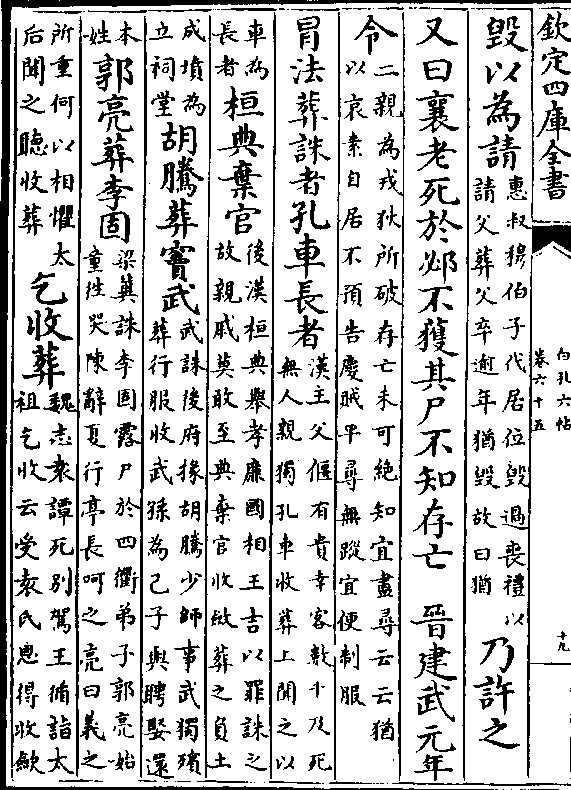 欽定四庫全書
白孔六帖
卷六十五
十九
毀以為請
惠叔穆伯子代居位毀過喪禮以
請父葬父卒逾年猶毀故曰猶
乃許之
又曰襄老死於邲不獲其尸不知存亡 晉建武元年
令
二親為戎狄所破存亡未可絶知宜盡尋云云猶
以哀素自居不預告慶賊平尋無蹤宜便制服
冐法葬誅者孔車長者
漢主父偃有貴幸客數十及死
無人親獨孔車收葬上聞之以
車為
長者
桓典棄官
後漢桓典舉孝廉國相王吉以罪誅之
故親戚莫敢至典棄官收斂葬之負土
成墳為
立祠堂
胡騰葬竇武
武誅後府掾胡騰少師事武獨殯
葬行服收武孫為己子與聘娶還
本
姓
郭亮葬李固
梁冀誅李固露尸於四衢弟子郭亮始
童徃哭陳辭夏行亭長呵之亮曰義之
所重何以相懼太
后聞之聽收葬
乞收葬
魏志袁譚死别駕王脩詣太
祖乞收云受袁氏恩得收歛